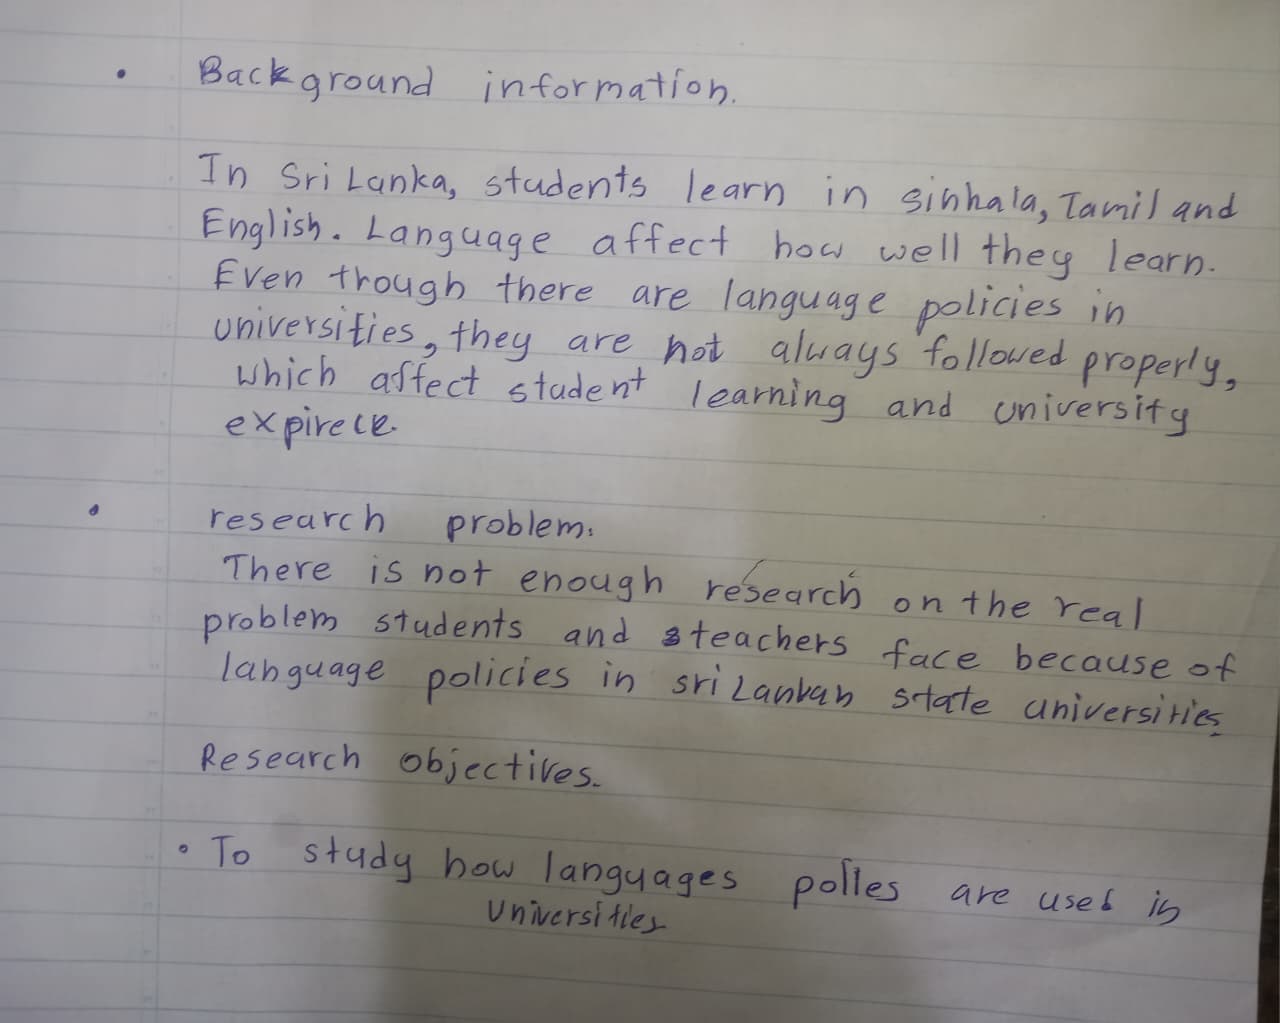 • Background information.
In Sri Lanka, students learn in sinhala, Tamil and
English. Language affect how well they learn.
Even trough there are language policies in
universities, they are not always followed properly,
which affect student learning and university
expirece.
• research problem.
There is not enough research on the real
problem students and teachers face because of
language policies in sri Lankan state universities.
Research objectives.
• To study how languages polles are used in
Universities